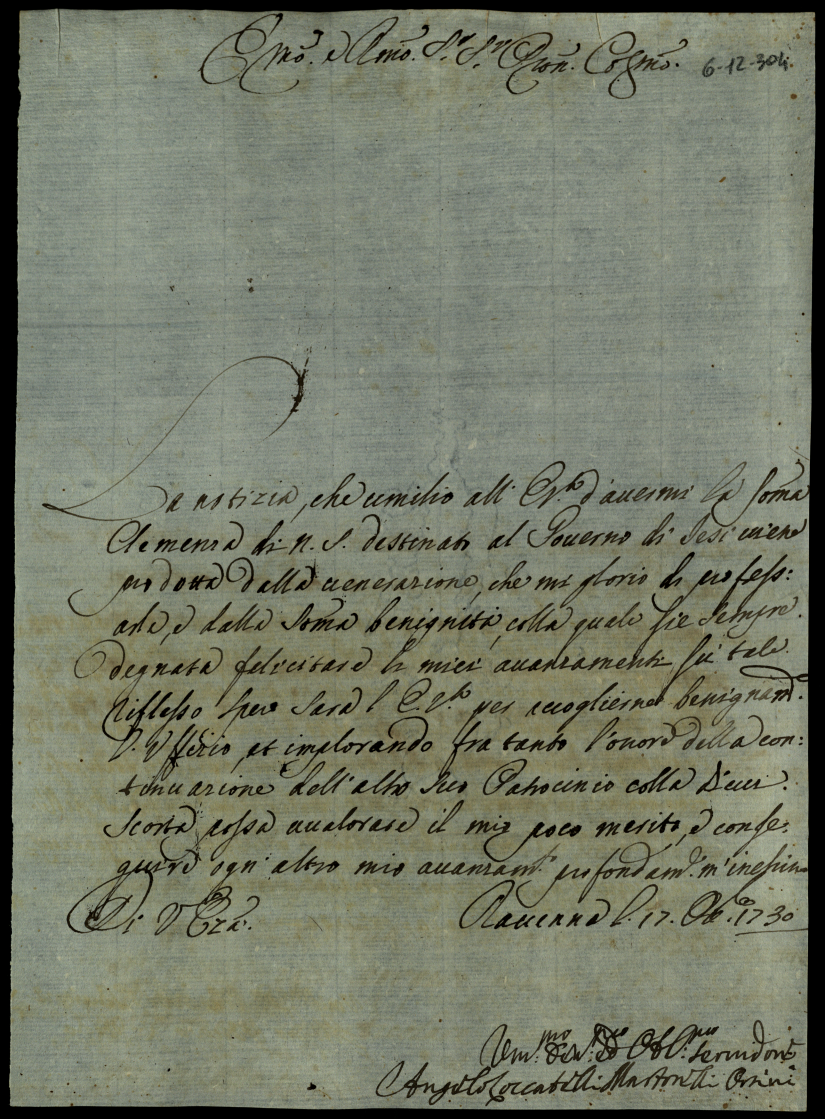 Emo. e Rmo. Sr. Sr. Pron. Colmo.
6-12-304
La notizia, che umilio all' E.V. d'avermi la Soma
Clemenza di N. S. destinato al Governo di Jesi viene
prodotta dalla venerazione, che mi glorio di profess:
arle, e dalla Soma benignità, colla quale si è sempre
degnata felicitare li miei avanzamenti. Su tale
riflesso spero sarà l' E.V. per accoglierne benignam.
l'Uffizio, et implorando fra tanto l'onore della con:
tinuazione dell'alto suo Patrocinio colla di cui
scorta possa avalorare il mio poco merito, e conse:
guire ogn' altro mio avanzam. profondam. m'inchino
Di V. Eza.
Ravenna l. 17. Obre. 1730
Um.mo Dev.mo ed Obl.mo Servidore
Angelo Loccatelli Martorelli Orsini